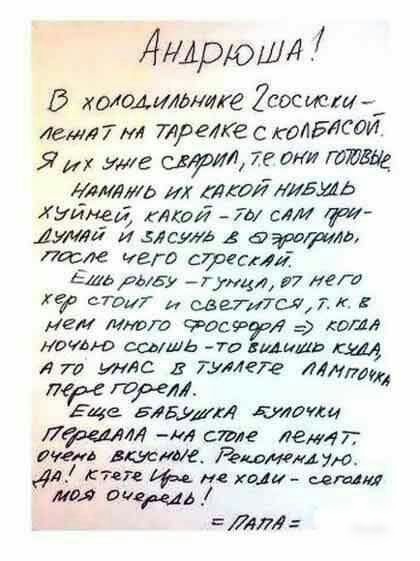 Андрюша!
В холодильнике 2 сосиски –
лежат на тарелке с колбасой.
Я их уже сварил, т.е. они готовые.
Намажь их какой нибудь
хуйней, какой – ты сам при-
думай и засунь в аэрогриль,
после чего стрескай.
Ешь рыбу – тунца, от него
хер стоит и светится, т.к. в
нем много фосфора => когда
ночью ссышь – то видишь куда,
а то у нас в туалете лампочка
перегорела.
Еще бабушка булочки
передала – на столе лежат.
очень вкусные. Рекомендую.
Да! К тете Ире не ходи – сегодня
моя очередь!
= ПАПА =